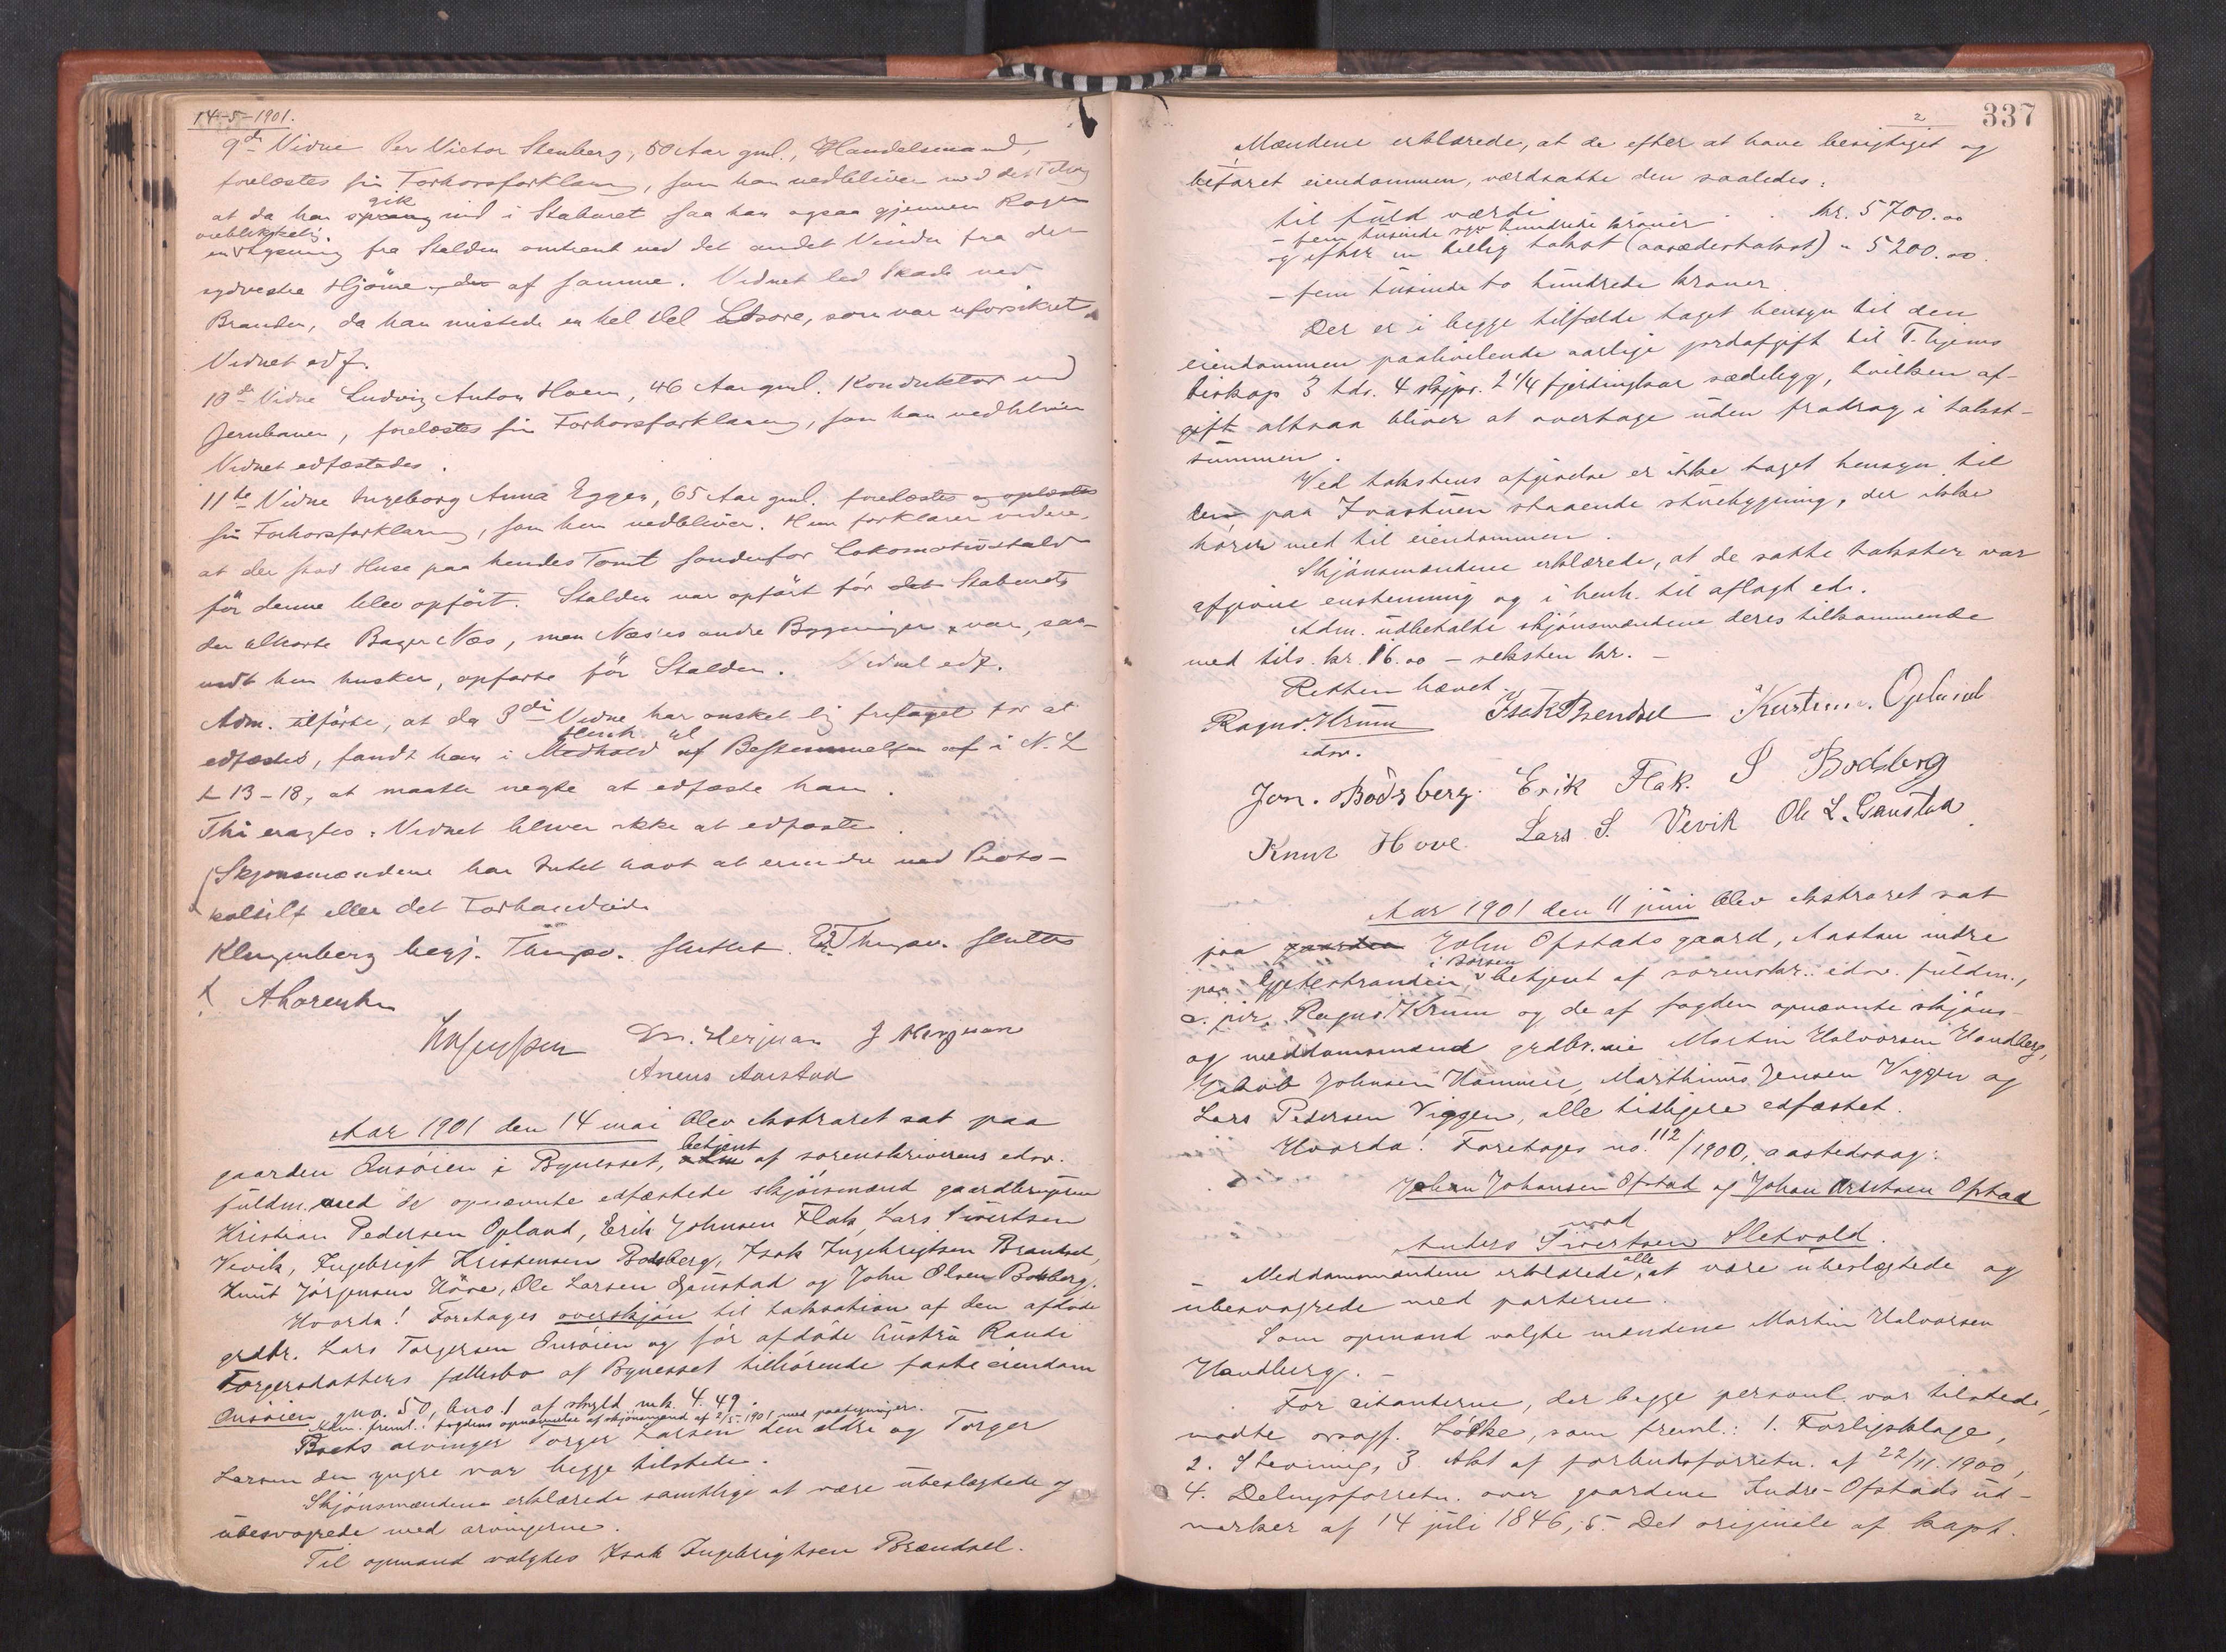 14-5-1901.
9de Vidne Per Victor Stenberg, 50 Aar gml., Handelsmand,
forelæstes sin Forhørsforklaring, som han vedbliver med det Tillæg
at da han gik ind i Staburet saa han ogsaa gjennem Røgen
en øieblikkelig Lysning fra Stalden omtrent ved det andet Vindu fra det
sydvestre Hjørne af samme. Vidnet led Skade ved
Branden, da han mistede en hel Del Løsøre, som var uforsikret.
Vidnet edf.
10de Vidne Ludvig Anton Hoem, 46 Aar gml. Konduktør ved
Jernbanen, forelæstes sin Forhørsforklaring, som han vedbliver
Vidnet edfæstedes.
11te Vidne Ingeborg Anna Eggen, 65 Aar gml. forelæstes og oplæstes
sin Forhørsforklaring, som hun vedbliver. Hun forklarer videre,
at der stod Huse paa hendes Tomt søndenfor Lokomotivstald
før denne blev opført. Stalden var opført før det Staburets
den Bager Næs, men Næs'es andre Bygninger var, saa-
vidt hun husker, opførte før Stalden. Vidnet edf.
Adm. tilførte, at da 3die Vidne har ønsket sig fritaget for at
edfæstes, fandt han i Henh. til Bestemmelsen i N. L
1-13-18, at maatte negte at edfæste ham.
Thi eragtes: Vidnet bliver ikke at edfæste.
Skjønsmændene har Intet havt at erindre ved Proto-
koltilf eller det Forhandlede
Klingenberg begj. Thingsv. sluttet. Thingsv. sluttes
A Lorentzen
Dr. Herjuan J Herjuan
Anens Aarstad
Aar 1901 den 14 mai blev ekstraret sat paa
gaarden Onsøien i Bynesset, betjent af sorenskriverens edsv.
fuldm. med de opnævnte edfæstede skjønsmænd gaardbrugerne
Kristian Pedersen Opland, Erik Johnsen Flak, Lars Sivertsen
Vevik, Ingebrigt Kristensen Bodsberg, Isak Ingebrigtsen Brændsel,
Knut Jørgensen Hove, Ole Larsen Gaustad og John Olsen Bodsberg.
Hvorda! Foretages overskjøn til taksation af den afdøde
grdbr. Lars Torgersen Onsøien og før afdøde hustru Randi
Torgersdatters fællesbo af Bynesset tilhørende faste eiendom
Onsøien, gno. 50, bno. 1 af skyld mk. 4.49.
Adm. freml.: fogdens opnævnelse af skjønsmænd af 2/5-1901 med paategninger.
Boets arvinger Torger Larsen den ældre og Torger
Larsen den yngre var begge tilstede.
Skjønsmændene erklærede samtlige at være ubeslægtede og
ubesvogrede med arvingerne.
Til opmand valgtes Isak Ingebrigtsen Brændsel.
337
2
Mændene erklærede, at de efter at have besigtiget og
befaret eiendommen, værdsatte den saaledes:
til fuld værdi . . kr. 5700.00
- fem tusinde syv hundrede kroner
og efter en billig takst (aasædestakst) " 5200.00.
- fem tusinde to hundrede kroner.
Der er i begge tilfælde taget hensyn til den
eiendommen paahvilende aarlige jordafgift til T.hjems
biskop 3 tdr. 4 skjpr. 2 1/4 fjerdingkar sædebygg, hvilken af-
gift altsaa bliver at overtage uden fradrag i takst-
summen.
Ved takstens afgivelse er ikke taget hensyn til
den paa staaende stuebygning, der ikke
hører med til eiendommen.
Skjønsmændene erklærede, at de satte takster var
afgivne enstemmig og i henh. til aflagt ed.
Adm. udbetalte skjønsmændene deres tilkommende
med tils. kr. 16.00 - seksten kr. -
Retten hævet.
Ragnv. Krum Isak Brendsel Kristian Opland
edsv.
Jon. Bodsberg. Erik Flak. I Bodsberg
Knut Hove. Lars S. Vevik Ole L. Gaustad.
Aar 1901 den 11 juni blev ekstraret sat
paa gaarden John Ofstads gaard, Aastan indre
paa Gjetestranden, i Børsen betjent af sorenskr. edsv. fuldm.,
c. jur. Ragnv. Krum og de af fogden opnævnte skjøns-
og meddomsmænd grdbr.ne Martin Halvorsen Handberg,
Jakob Johnsen Hammer, Marthinus Jensen Viggen og
Lars Pedersen Viggen, alle tidligere edfæstet.
Hvorda! Foretages no. 112/1900, aastedssag:
Johan Johansen Ofstad og Johan Arntsen Ofstad
mod
Anders Sivertsen Sletvold.
Meddommændene erklærede, alle at være ubeslægtede og
ubesvogrede med parterne.
Som opmand valgte mændene Martin Halvorsen
Handberg. -
For citanterne, der begge personl. var tilstede,
mødte orsagf. Løkke, som freml.: 1. Forligsklage,
2. Stevning, 3. Akt af forbudsforretn. af 22/11.1900,
4. Delingsforretn. over gaardene Indre-Ofstads ud-
marker af 14 juli 1846, 5. Det originale af kapt.